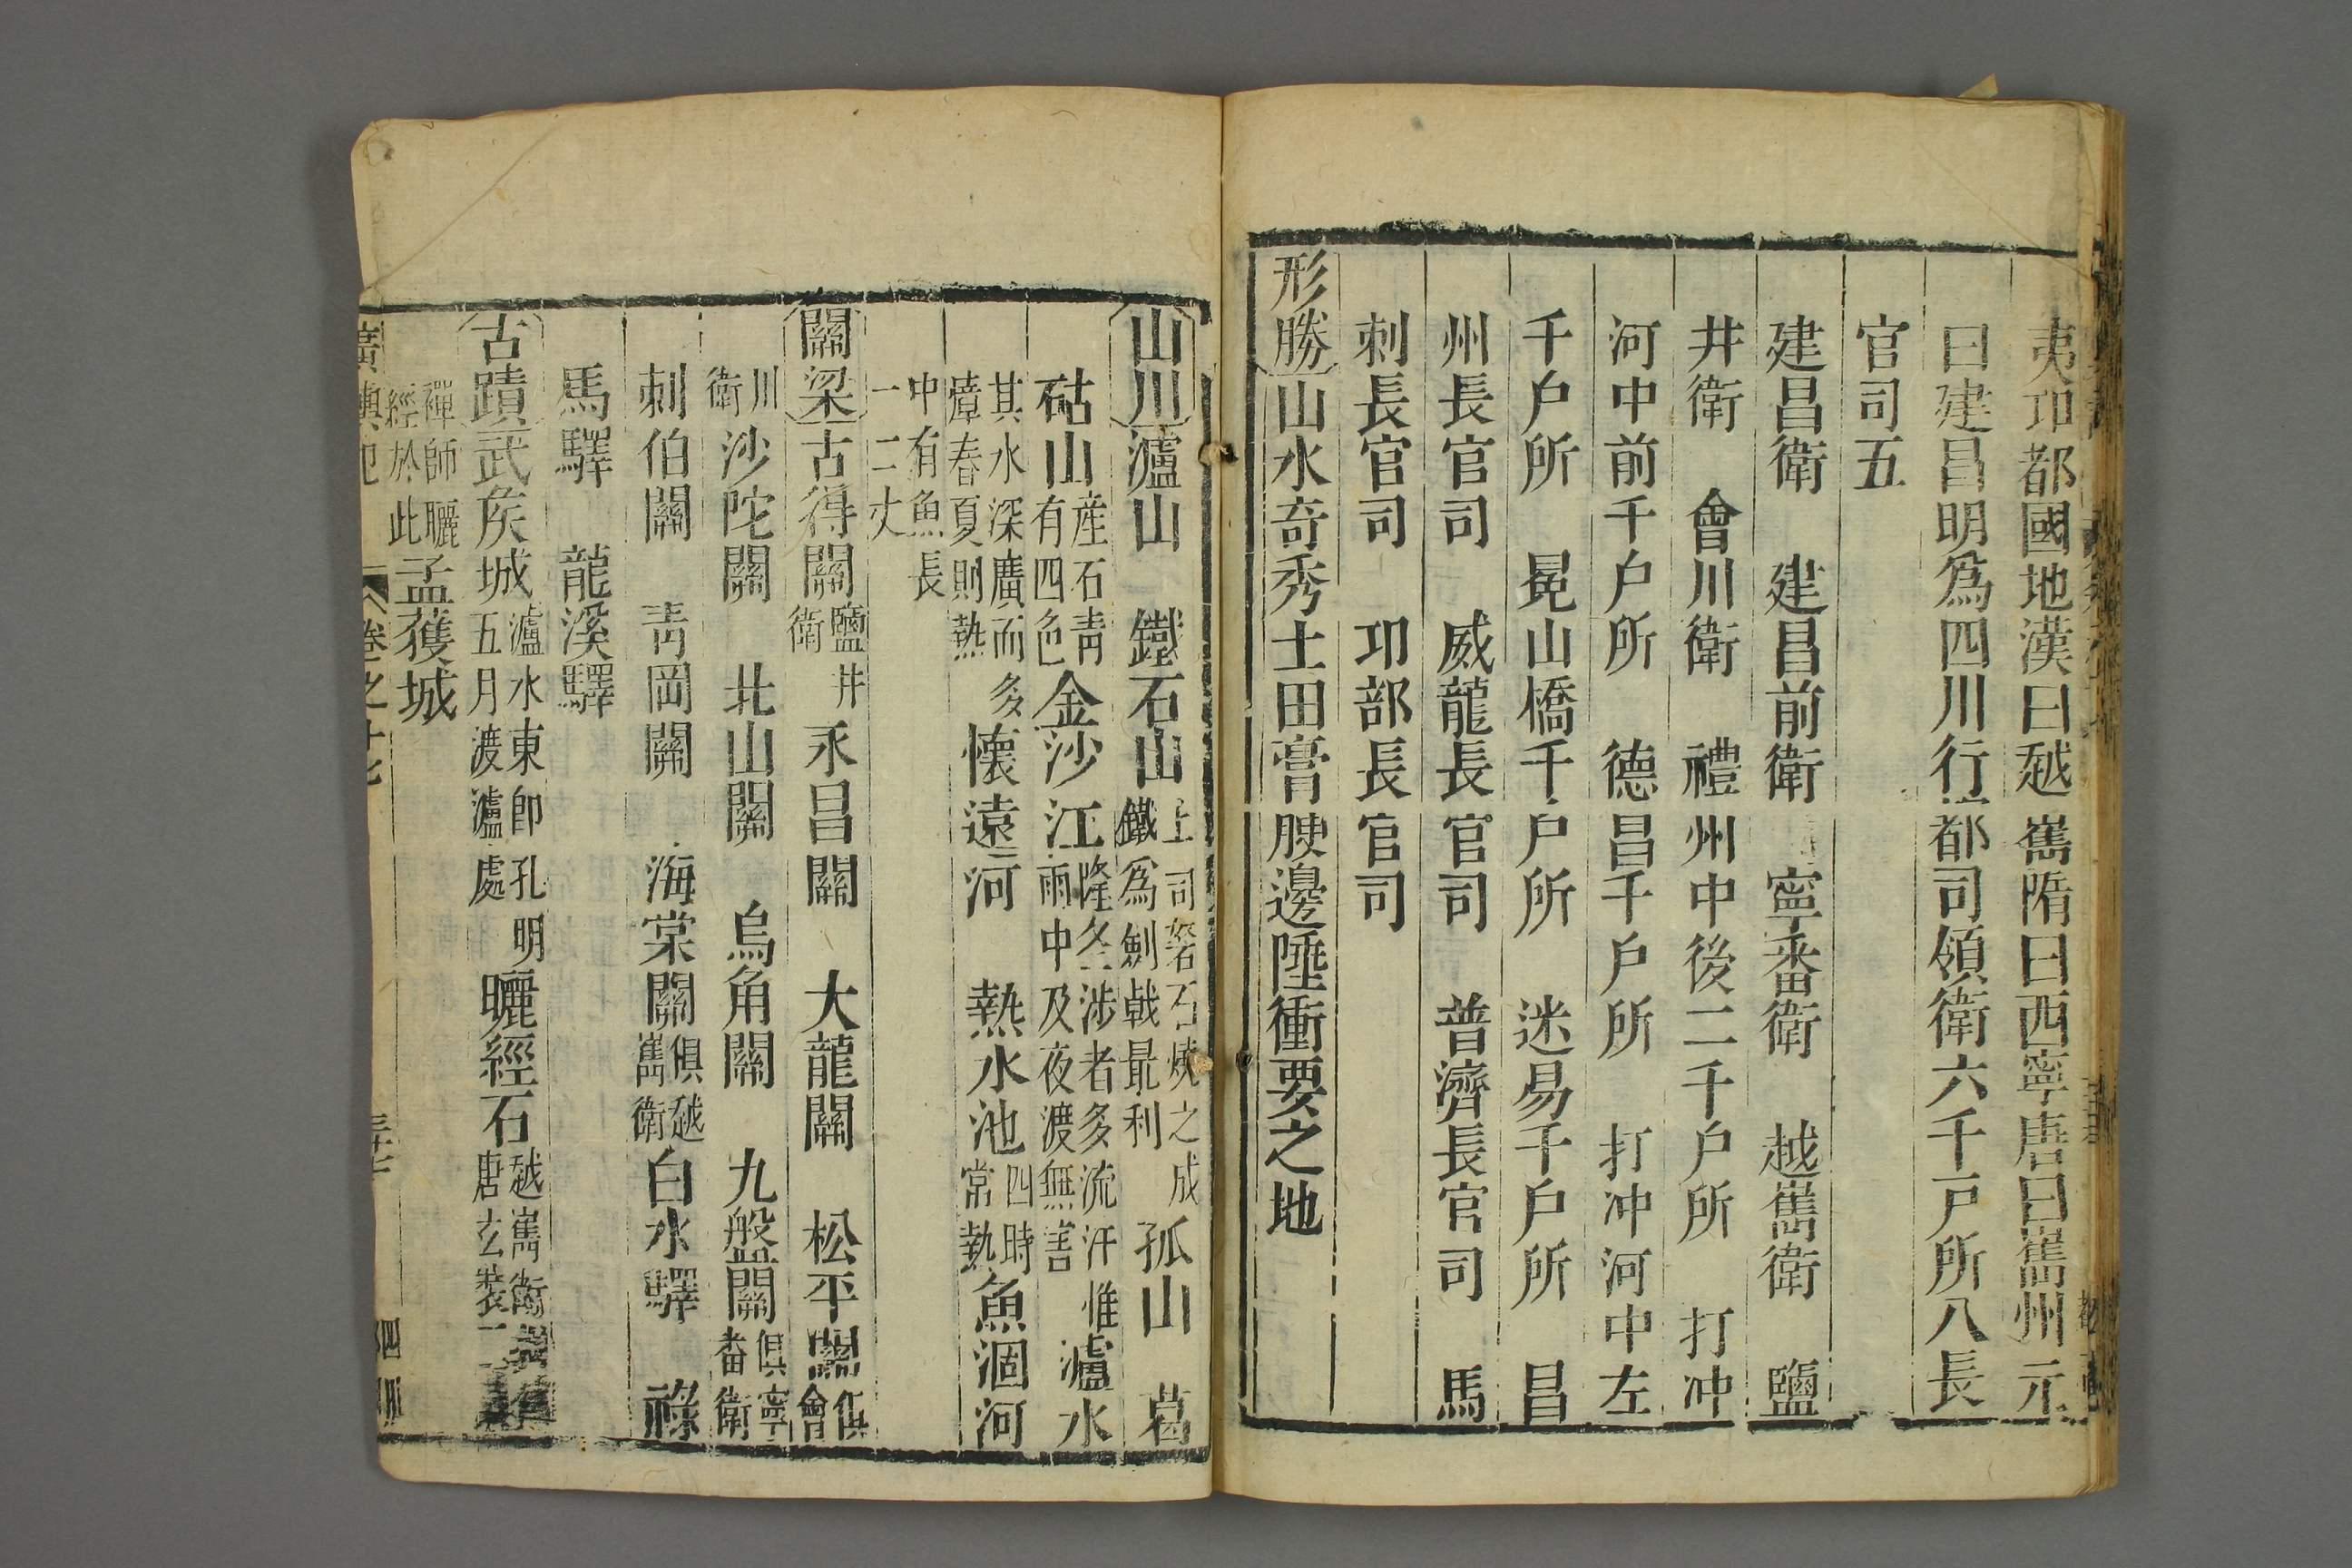 夷卭都國地漢曰越巂隋曰西寧唐曰巂州元
曰建昌明爲四川行都司領衛六千戸所八長
官司五
建昌衛 建昌前衛 寧番衛 越巂衛 鹽
井衛 會川衛 禮州中後二千戸所 打冲
河中前千戸所 德昌千戸所 打冲河中左
千戸所 冕山橋千戸所 迷易千戸所 昌
州長官司 威龍長官司 普濟長官司 馬
刺長官司 卭部長官司
形勝 山水奇秀土田膏腴邊陲衝要之地
山川 瀘山 鐵石山 上司砮石燒之成鐵爲劍戟最利 孤山 葛
砝山 産石青有四色 金沙江 隆冬涉者多流汗惟雨中及夜渡無害 瀘水
其水深廣而多瘴春夏則熱 懷遠河 熱水池 四時常熱 魚涸河
中有魚長一二丈
關梁 古得關 鹽井衛 永昌關 大龍關 松平關 俱會
川衛 沙陀關 北山關 烏角關 九盤關 俱寧番衛
刺伯關 靑岡關 海棠關 俱越巂衛 白水驛 祿
馬驛 龍溪驛
古蹟 武矦城 瀘水東卽孔明五月渡瀘處 曬經石 越巂衛唐玄裝三
禪師曬經於此 孟獲城
廣輿記 卷之十七 三十七